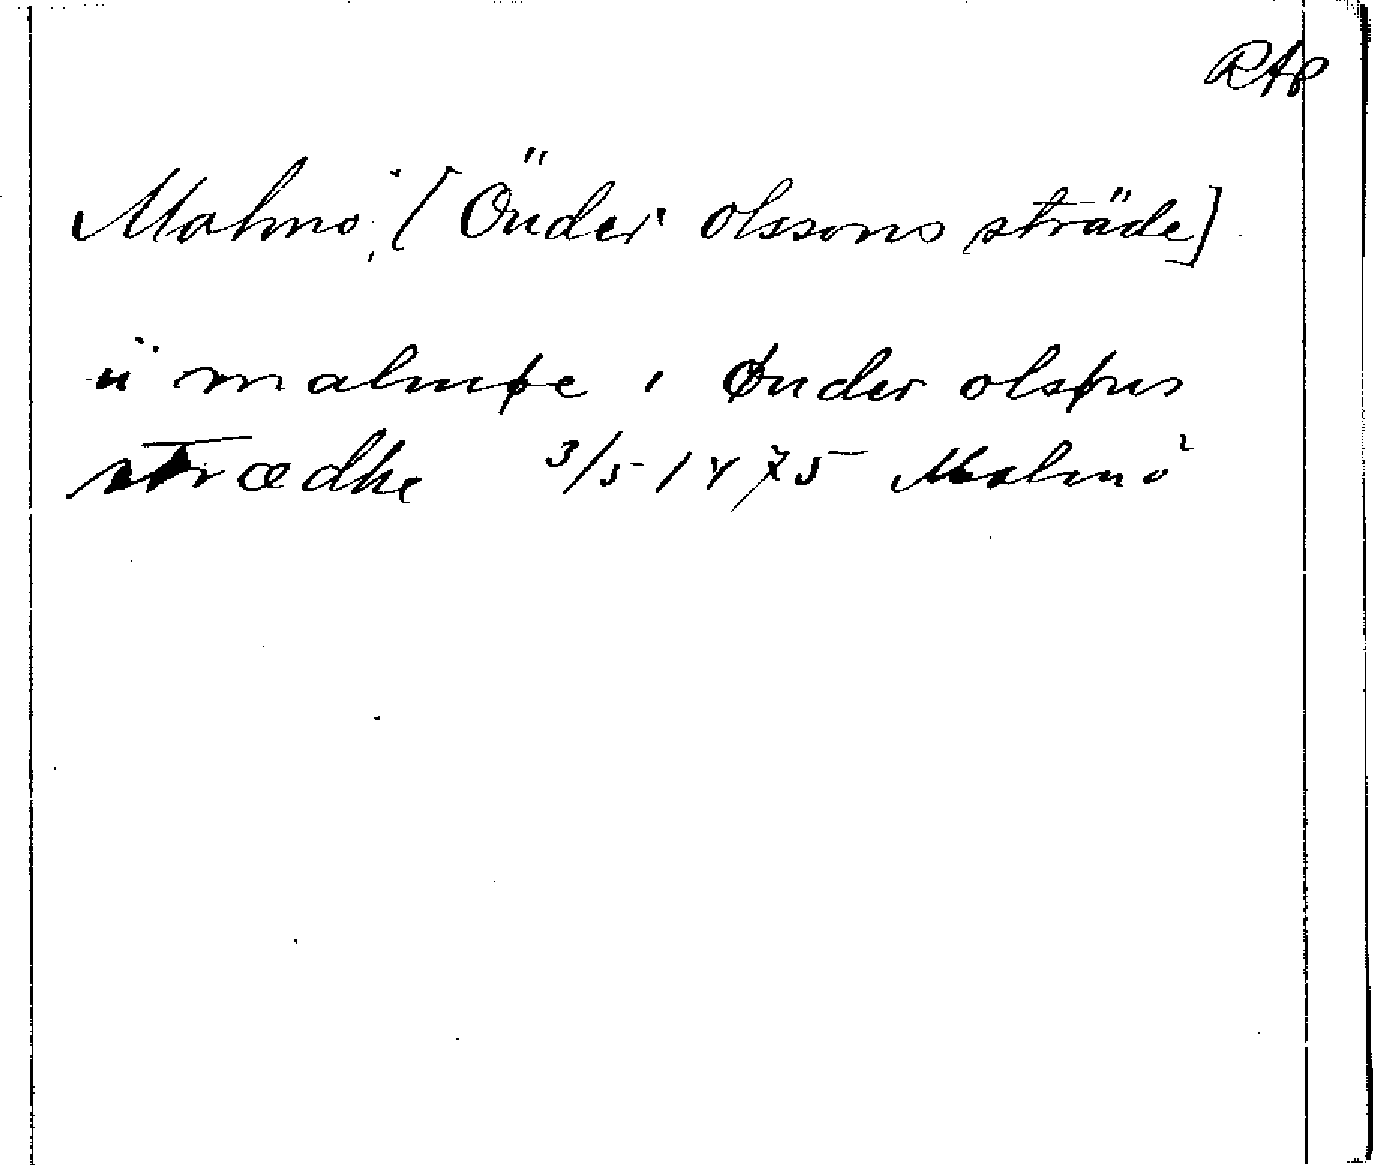 RAP
Malmö: [Önder Olssons sträde]
ij malmøe i Ønder olsøns
strædhe 3/5 1475 Malmö